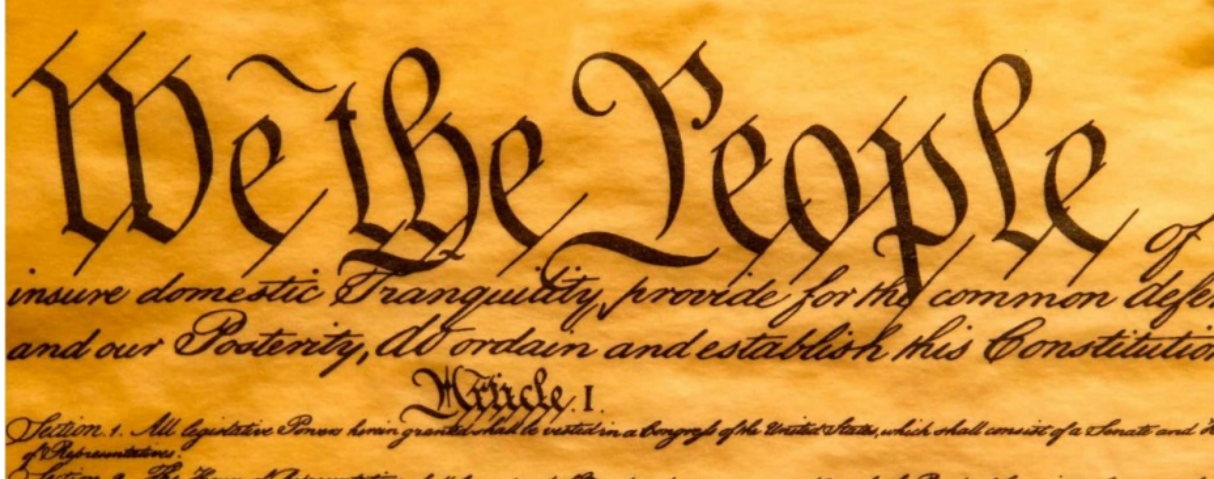 We the People of
insure domestic Tranquility, provide for the common defen
and our Posterity, do ordain and establish this Constitution
Article. I.
Section. 1. All legislative Powers herein granted shall be vested in a Congress of the United States, which shall consist of a Senate and H
of Representatives.
Section. 2. The House of Representatives